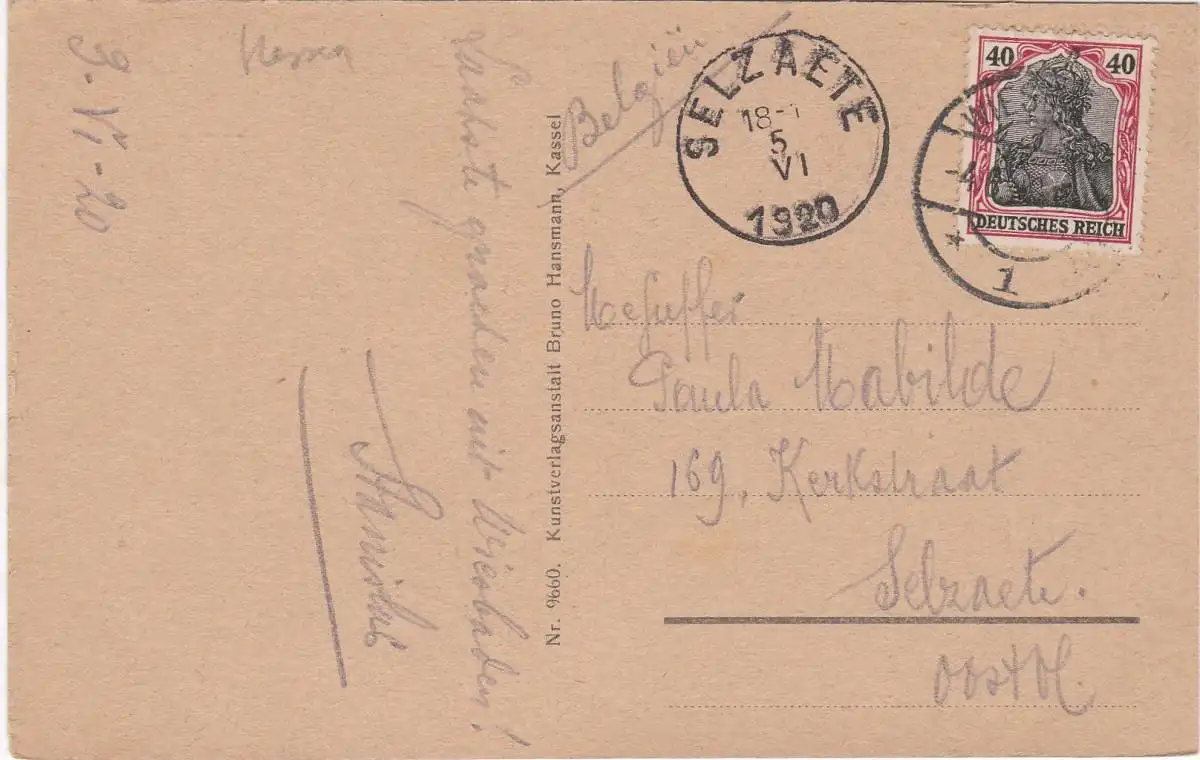 3. VI - 20
Hessen
grachten uit Wiesbaden!
Nr. 9660. Kunstverlagsanstalt Bruno Hansmann, Kassel
Belgien
SELZAETE
18-
5
VI
1920
40 40
DEUTSCHES REICH
1
Mejuffer
Paula Mabilde
169, Kerkstraat
Selzaete.
Oostvl.